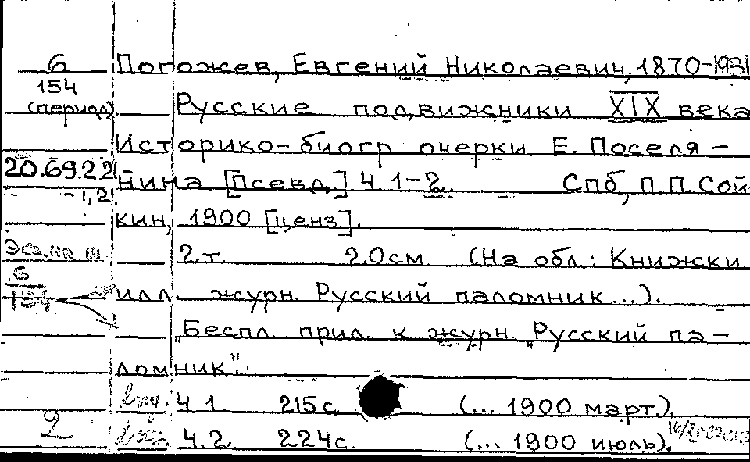 6 Погожев, Евгений Николаевич, 1870-1931
154
(период) Русские подвижники XIX века
Историко-биогр очерки Е. Поселя-
20.69.22 нина [псевд.] Ч 1-2. Спб, П.П. Сой
-1,2
кин, 1900 [ценз].
2 т. 20 см. (На обл: Книжски
6
154 илл журн. Русский паломник...).
Беспл. прил. к журн „Русский па-
ломник".
Ч 1. 215 с. (... 1900 март.).
2 Ч. 2. 224 с. (... 1900 июль).